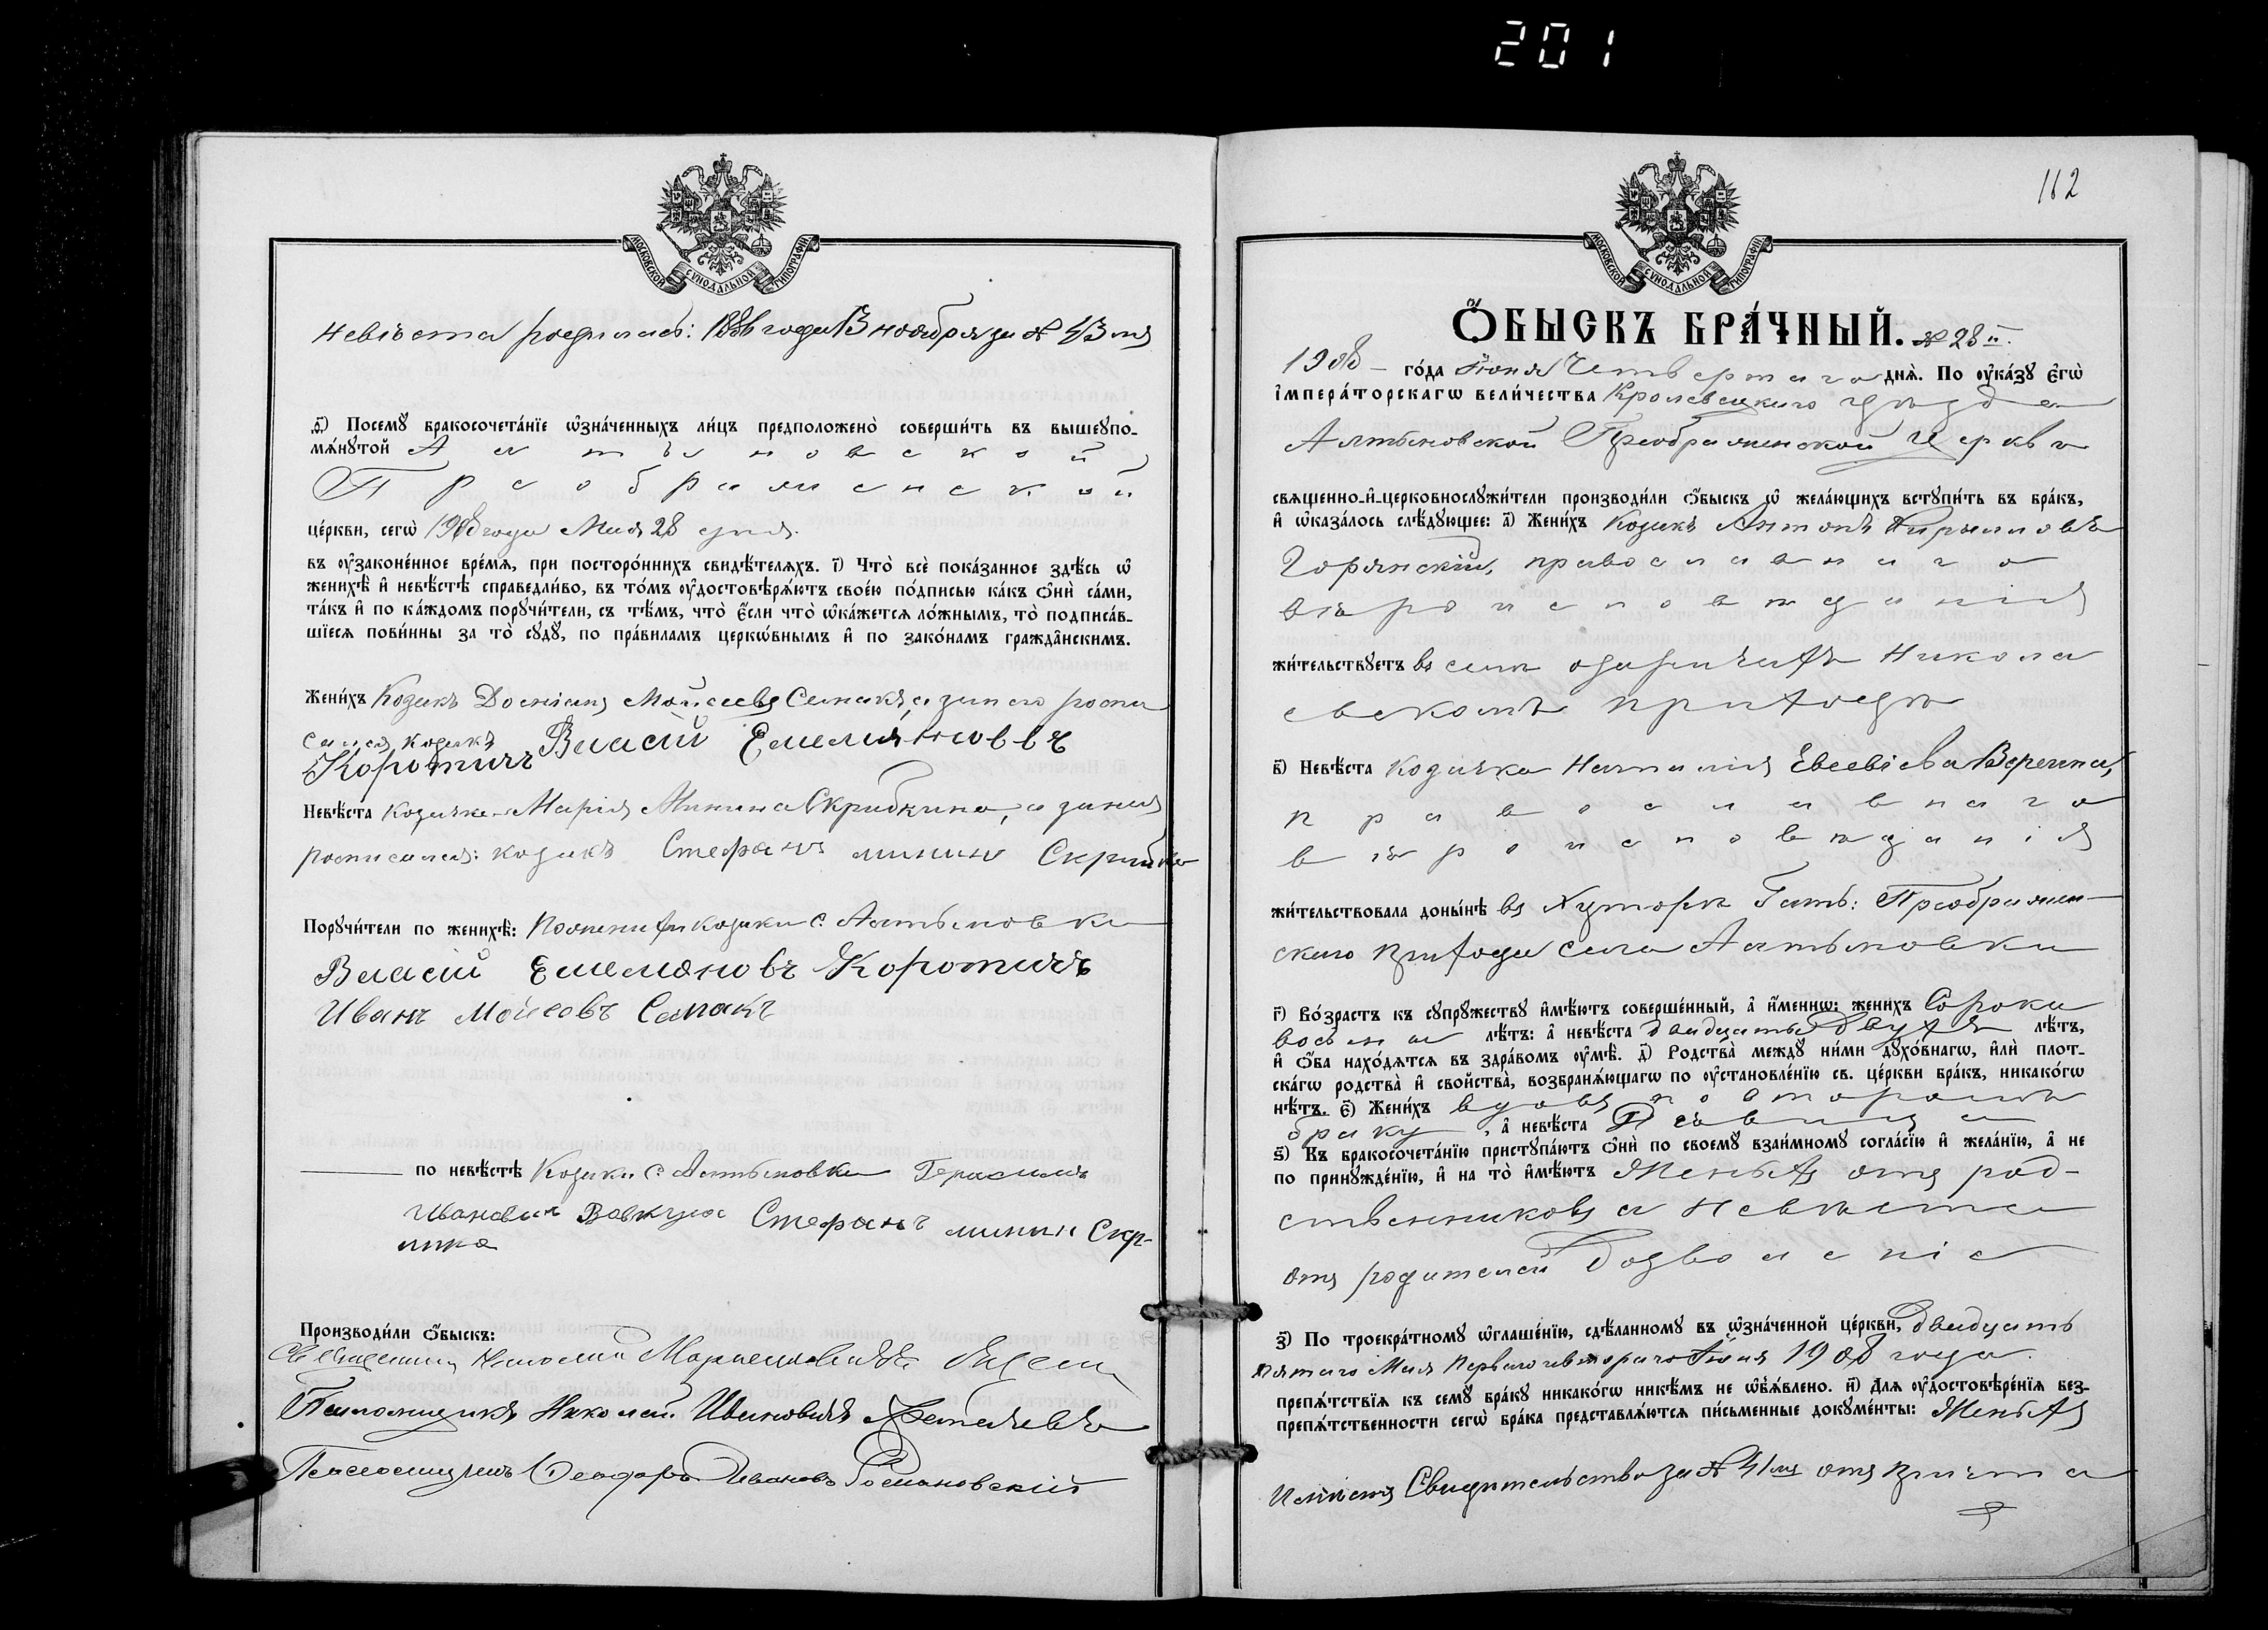 201
МОСКОВСКОЙ СУНОДАЛЬНОЙ ТИПОГРАФІИ
невѣста родилась: 1886 года 13 ноября за № 43 мъ
ѳ҃) Посемꙋ бракосочета́нїе ѡ҆зна́ченныхъ ли́цъ предположено̀ соверши́ть въ вышеупо-
мѧ́нꙋтой Алтыновской
Преображенской
це́ркви, сегѡ̀ 1908 года Мая 28 дня.
въ ᲂу҆зако́ненное вре́мѧ, при посторо́ннихъ свидѣ́телѧхъ. і҃) Что̀ всѐ пока́занное здѣ́сь ѡ҆
женихѣ̀ и҆ невѣ́стѣ справедли́во, въ то́мъ ᲂу҆достовѣрѧ́ютъ свое́ю по́дписью ка́къ ѻ҆нѝ са́ми,
та́къ и҆ по ка́ждомъ порꙋчи́тели, съ тѣ́мъ, что̀ є҆́сли что̀ ѡ҆ка́жетсѧ ло́жнымъ, то̀ подписа́в-
шїесѧ пови́нны за то̀ сꙋдꙋ̀, по пра́виламъ церкѡ́внымъ и҆ по зако́намъ гражда̂нскимъ.
Жени́хъ Козакъ Мойсеевъ Семакъ, а за него роспи
сался козакъ Власій Емельяновъ
Коротичъ
Невѣ́ста Козачка Марія Минина Скрибкина, а за нея
росписался: козакъ Стефанъ мининъ
Порꙋчи́тели по женихѣ̀: козаки с. Алтыновки
Власій Емельяновъ Коротичъ
Иванъ Мойсеовъ Семакъ
по невѣ́стѣ Козаки с. Алтыновки Герасимъ
Ивановъ Стефанъ минин
Производи́ли ѻ҆́быскъ:
Священникъ Николай
Псаломщикъ Николай Ивановичъ
Псаломщикъ Ѳеодоръ Ивановъ Романовскій
112
МОСКОВСКОЙ СУНОДАЛЬНОЙ ТИПОГРАФІИ
Ѻ҆́БЫСКЪ БРА́ЧНЫЙ. № 28 й.
1908 го́да Іюня Четвертаго днѧ̀. По ᲂу҆ка́зꙋ є҆гѡ̀
і҆мпера́торскагѡ вели́чества Кролевецкаго уѣзда
Алтыновской Преображенской Церкви
свѧще́нно-и҆-церковнослꙋжи́тели производи́ли ѻ҆́быскъ ѡ҆ жела́ющихъ встꙋпи́ть въ бра́къ,
и҆ ѡ҆каза́лось слѣ́дꙋющее: а҃) Жени́хъ Козакъ Антонъ Кириловъ
Горянскій, православнаго
вѣроисповѣданія
жи́тельствꙋетъ въ селѣ Никола
евскомъ приходѣ
в҃) Невѣ́ста Козачка Наталія Евсевіева Веремій,
православнаго
вѣроисповѣданія
жи́тельствовала доны́нѣ въ Хуторѣ Гать: Преображен-
скаго прихода села Алтыновки
г҃) Во́зрастъ къ сꙋпрꙋ́жествꙋ и҆мѣ́ютъ соверше́нный, а҆ и҆́менно: жени́хъ Сорока
восьми лѣ́тъ: а҆ невѣ́ста двадцати двухъ лѣ́тъ,
и҆ ѻ҆́ба нахо́дѧтсѧ въ здра́вомъ ᲂу҆мѣ̀. д҃) Родства̀ междꙋ̀ ни́ми дꙋхо́внагѡ, и҆лѝ плот-
ска́гѡ родства̀ и҆ сво́йства, возбранѧ́ющагѡ по ᲂу҆становле́нїю св. це́ркви бра́къ, никако́гѡ
нѣ́тъ. є҃) Жени́хъ вдовъ по второмъ
браку, а҆ невѣ́ста Дѣвица
ѕ҃) Къ бракосочета́нїю пристꙋпа́ютъ ѻ҆нѝ по своемꙋ̀ взаи́мномꙋ согла́сїю и҆ жела́нїю, а҆ не
по принꙋжде́нїю, и҆ на то̀ и҆мѣ́ютъ Женихъ отъ род-
ственниковъ а невѣста
отъ родителей Дозволеніе
з҃) По троекра́тномꙋ ѡ҆глаше́нїю, сдѣ́ланномꙋ въ ѡ҆зна́ченной це́ркви, двадцать
пятаго Мая Перваго и второго Іюня 1908 года.
препѧ́тствїѧ къ семꙋ̀ бра́кꙋ никако́гѡ никѣ́мъ не ѡ҆б̾ѧ́влено. и҃) Для ᲂу҆достовѣре́нїѧ без-
препѧ́тственности сегѡ̀ бра́ка представлѧ́ютсѧ пи́сьменные докꙋме́нты: Женихъ
Свидѣтельство за № 41 мъ отъ причта